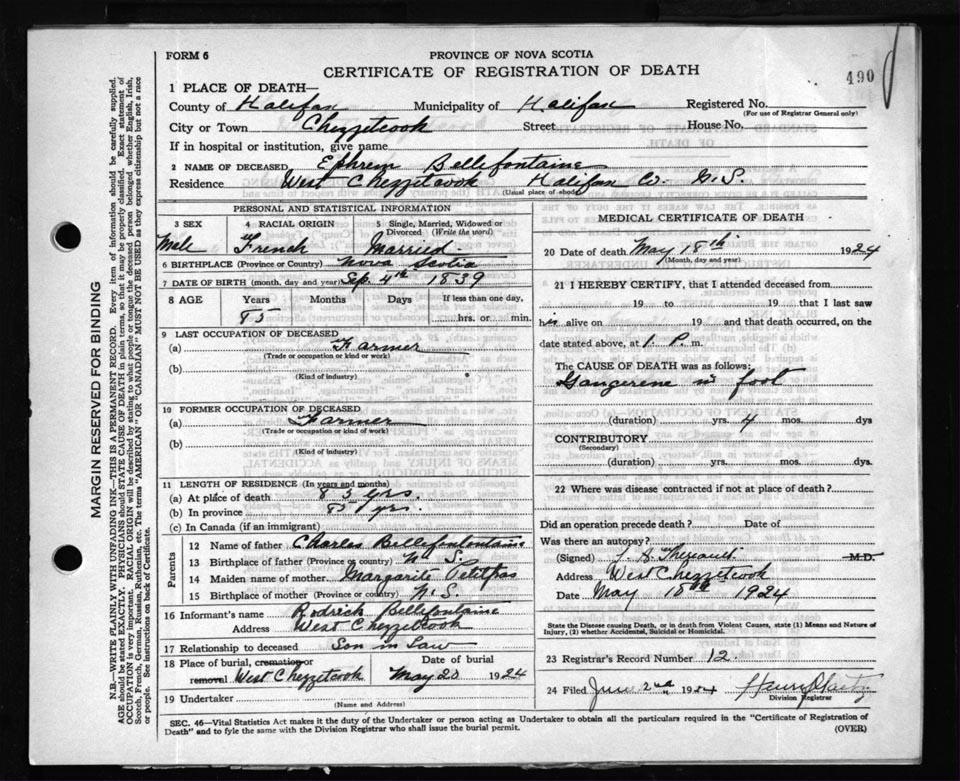 FORM 6
PROVINCE OF NOVA SCOTIA
CERTIFICATE OF REGISTRATION OF DEATH
490
1 PLACE OF DEATH—
County of Halifax Municipality of Halifax Registered No.
(For use of Registrar General only)
City or Town Chezzetcook Street House No.
If in hospital or institution, give name
2 NAME OF DECEASED Ephrem Bellefontaine
Residence West Chezzetcook Halifax Co. N.S.
(Usual place of abode)
PERSONAL AND STATISTICAL INFORMATION
3 SEX 4 RACIAL ORIGIN 5 Single, Married, Widowed or Divorced (Write the word)
Male French Married
6 BIRTHPLACE (Province or Country) Nova Scotia
7 DATE OF BIRTH (month, day and year) Sep. 4th 1839
8 AGE Years Months Days If less than one day,
85 hrs. or min.
9 LAST OCCUPATION OF DECEASED
(a) Farmer
(Trade or occupation or kind of work)
(b)
(Kind of industry)
10 FORMER OCCUPATION OF DECEASED
(a) Farmer
(Trade or occupation or kind of work)
(b)
(Kind of industry)
11 LENGTH OF RESIDENCE (In years and months)
(a) At place of death 85 yrs.
(b) In province 85 yrs.
(c) In Canada (if an immigrant)
Parents
12 Name of father Charles Bellefonlontaine
13 Birthplace of father (Province or country) N.S.
14 Maiden name of mother Margarite Petitpas
15 Birthplace of mother (Province or country) N.S.
16 Informant's name Rodrick Bellefontaine
Address West Chezzetcook
17 Relationship to deceased Son in Law
18 Place of burial, cremation or removal West Chezzetcook
Date of burial May 20 1924
19 Undertaker
(Name and Address)
MEDICAL CERTIFICATE OF DEATH
20 Date of death May 18th 1924
(Month, day and year)
21 I HEREBY CERTIFY, that I attended deceased from
19 to 19 that I last saw
him alive on 19 and that death occurred, on
date stated above, at 1. P. m.
The CAUSE OF DEATH was as follows:
Gangerene in foot
(duration) yrs. 4 mos. dys
CONTRIBUTORY
(Secondary)
(duration) yrs. mos. dys.
22 Where was disease contracted if not at place of death?
Did an operation precede death? Date of
Was there an autopsy?
(Signed) Theriault M.D.
Address West Chezzetcook
Date May 18th 1924
State the Disease causing Death, or in death from Violent Causes, state (1) Means and Nature of
Injury, (2) whether Accidental, Suicidal or Homicidal.
23 Registrar's Record Number 12.
24 Filed June 2nd 1924
Division Registrar
SEC. 46—Vital Statistics Act makes it the duty of the Undertaker or person acting as Undertaker to obtain all the particulars required in the "Certificate of Registration of
Death" and to fyle the same with the Division Registrar who shall issue the burial permit. (OVER)
MARGIN RESERVED FOR BINDING
N.B.—WRITE PLAINLY WITH UNFADING INK—THIS IS A PERMANENT RECORD. Every item of information should be carefully supplied.
AGE should be stated EXACTLY. PHYSICIANS should STATE CAUSE OF DEATH in plain terms, so that it may be properly classified. Exact statement of
OCCUPATION is very important. RACIAL ORIGIN will be described by stating to what people or tongue the deceased person belonged whether English, Irish,
Scotch, French, German, Russian, Ruthenian, etc. The terms "AMERICAN" OR "CANADIAN" MUST NOT BE USED as they express citizenship but not a race
or people. See instructions on back of Certificate.